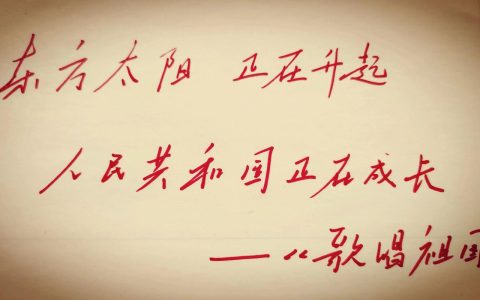 东方太阳 正在升起
人民共和国正在成长
——《歌唱祖国